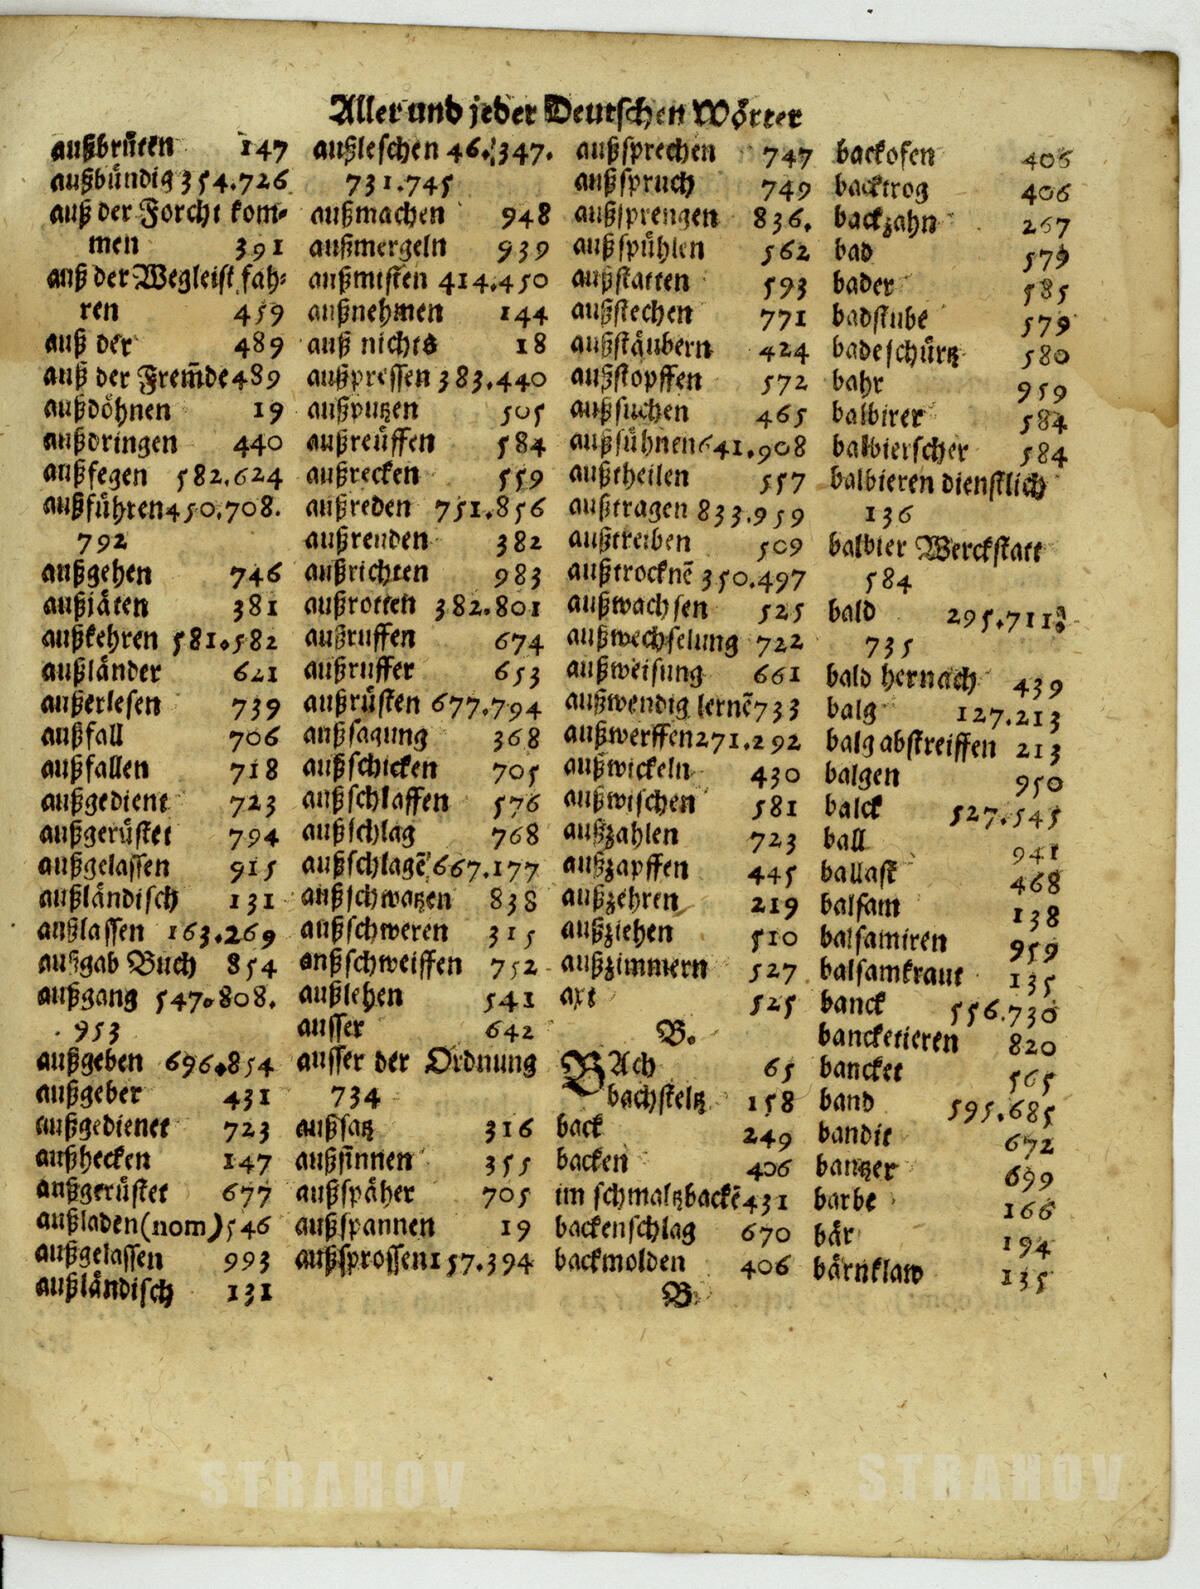 Aller und jeder Deutschen Wörter
außbrüten 147
außbündig 354.726
auß der Forcht kom-
men 391
auß der Wegleist fah-
ren 459
auß der 489
auß der Frem̃de 489
außdöhnen 19
außdringen 440
außfegen 582.624
außführen 450.708.
792
außgehen 746
außjäten 381
außkehren 581.582
außländer 621
außerlesen 739
außfall 706
außfallen 718
außgedient 723
außgerüstet 794
außgelassen 915
außländisch 131
außlassen 163.269
außgab Buch 854
außgang 547.808.
953
außgeben 696.854
außgeber 431
außgedienet 723
außhecken 147
außgerüstet 677
außladen (nom) 546
außgelassen 993
außländisch 131
außleschen 46.347.
731.745
außmachen 948
außmergeln 939
außmisten 414.450
außnehmen 144
auß nichts 18
außpressen 383.440
außputzen 505
außreüffen 584
außrecken 559
außreden 751.856
außreuden 382
außrichten 983
außrotten 382.801
außruffen 674
außruffer 653
außrüsten 677.794
außsagung 368
außschicken 705
außschlaffen 576
außschlag 768
außschlagẽ 667.177
außschwatzen 838
außschweren 315
außschweiffen 752
außlehen 541
ausser 642
ausser der Ordnung
734
außsatz 316
außsinnen 355
außspäher 705
außspannen 19
außsprossen 157.394
außsprechen 747
außspruch 749
außsprengen 836.
außspühlen 562
außstatten 593
außstechen 771
außstäubern 424
außstopffen 572
außsuchen 465
außsühnen 641.908
außtheilen 557
außtragen 833.959
außtreiben 509
außtrocknẽ 350.497
außwachsen 525
außwechselung 722
außweisung 661
außwendig lernẽ 733
außwerffen 271.292
außwickeln 430
außwischen 581
außzahlen 723
außzapffen 445
außzehren 219
außziehen 510
außzimmern 527
axt 525
B.
BAch 65
bachsteltz 158
back 249
backen 406
im schmaltz backẽ 431
backenschlag 670
backmolden 406
backofen 406
backtrog 406
backzahn 267
bad 579
bader 585
badstube 579
badeschürtz 580
bahr 959
balbirer 584
balbierscher 584
balbieren dienstlich
136
balbier Werckstatt
584
bald 295.711.
735
bald hernach 439
balg 127.213
balg abstreiffen 213
balgen 950
balck 527.545
ball 941
ballast 468
balsam 138
balsamiren 959
balsamkraut 135
banck 556.730
bancketieren 820
bancket 565
band 595.685
bandit 672
bantzer 699
barbe 166
bär 194
bärnklaw 135
B
STRAHOV
STRAHOV